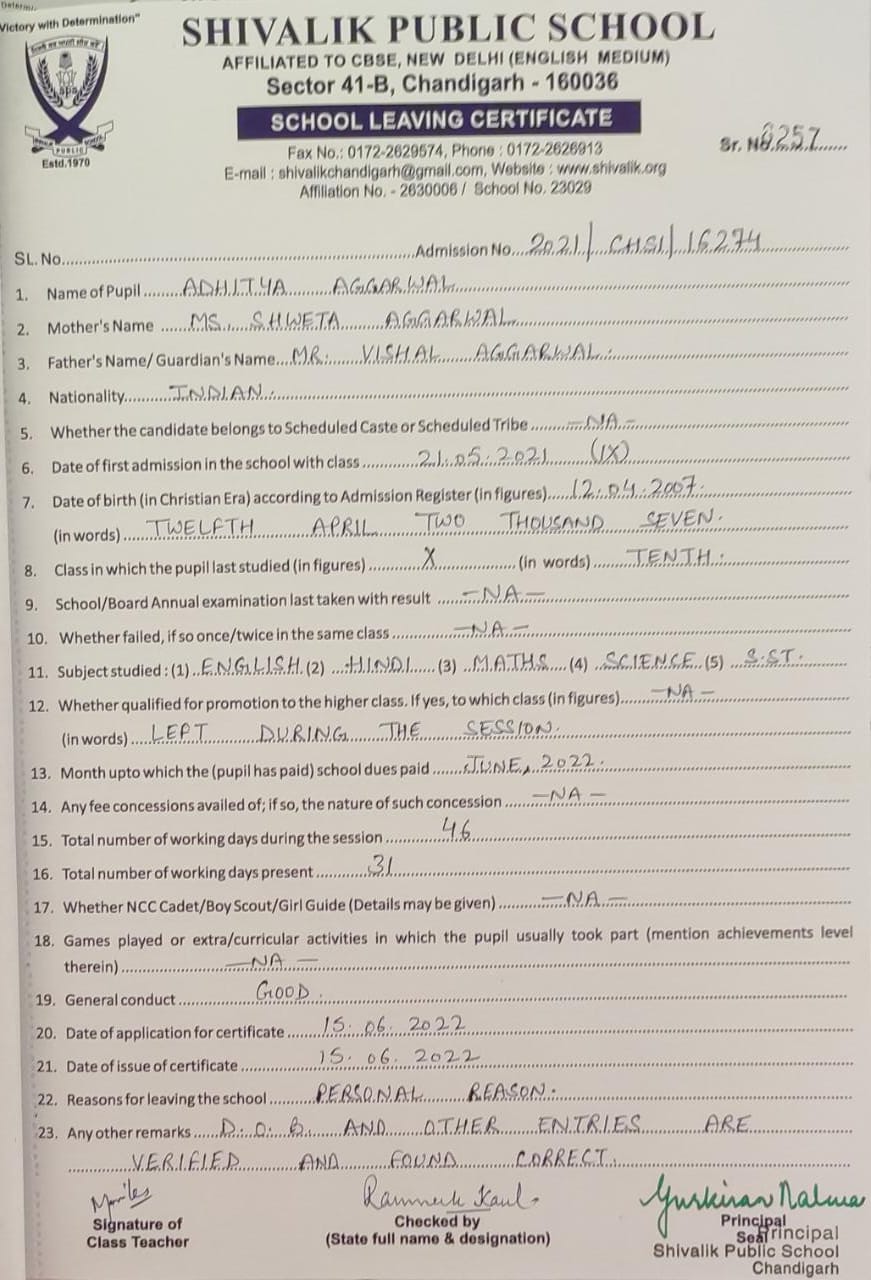 Victory with Determination"
SHIVALIK PUBLIC SCHOOL
AFFILIATED TO CBSE, NEW DELHI (ENGLISH MEDIUM)
Sector 41-B, Chandigarh - 160036
SCHOOL LEAVING CERTIFICATE
Estd.1970
Sr. No 8257
Fax No.: 0172-2629574, Phone : 0172-2626913
E-mail : shivalikchandigarh@gmail.com, Website : www.shivalik.org
Affiliation No. - 2630006 / School No. 23029
SL. No. Admission No. 2021/ CHSI/ 16274
1. Name of Pupil ADHITYA AGGARWAL
2. Mother's Name MS. SHWETA AGGARWAL
3. Father's Name/ Guardian's Name MR. VISHAL AGGARWAL.
4. Nationality INDIAN.
5. Whether the candidate belongs to Scheduled Caste or Scheduled Tribe -NA-
6. Date of first admission in the school with class 21.05.2021 (IX)
7. Date of birth (in Christian Era) according to Admission Register (in figures) 12.04.2007.
(in words) TWELFTH APRIL TWO THOUSAND SEVEN.
8. Class in which the pupil last studied (in figures) X (in words) TENTH.
9. School/Board Annual examination last taken with result -NA-
10. Whether failed, if so once/twice in the same class -NA-
11. Subject studied : (1) ENGLISH (2) HINDI (3) MATHS (4) SCIENCE (5) S.ST.
12. Whether qualified for promotion to the higher class. If yes, to which class (in figures) -NA-
(in words) LEFT DURING THE SESSION.
13. Month upto which the (pupil has paid) school dues paid JUNE, 2022.
14. Any fee concessions availed of; if so, the nature of such concession -NA-
15. Total number of working days during the session 46
16. Total number of working days present 31
17. Whether NCC Cadet/Boy Scout/Girl Guide (Details may be given) -NA-
18. Games played or extra/curricular activities in which the pupil usually took part (mention achievements level
therein) -NA-
19. General conduct GOOD.
20. Date of application for certificate 15.06.2022
21. Date of issue of certificate 15.06.2022
22. Reasons for leaving the school PERSONAL REASON.
23. Any other remarks D.O.B. AND OTHER ENTRIES ARE
VERIFIED AND FOUND CORRECT.
Kaul Gurkiran
Signature of Checked by Principal
Class Teacher (State full name & designation) Seal
Principal
Shivalik Public School
Chandigarh